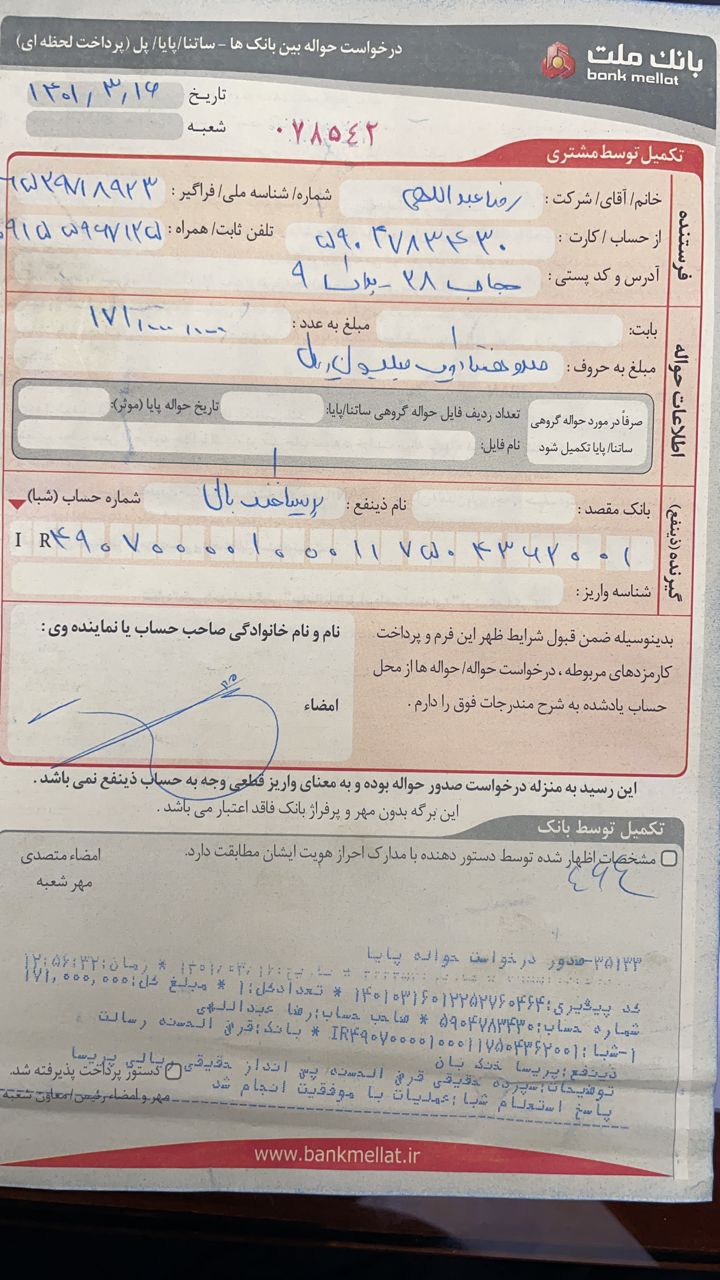 بانک ملت
bank mellat
درخواست حواله بین بانک ها - ساتنا/پایا/ پل (پرداخت لحظه ای)
تاریخ ۱۴۰۱٫۳٫۱۶
شعبه
۰۷۸۵۴۲
تکمیل توسط مشتری
فرستنده
خانم/ آقای/ شرکت : رضا عبداللهی شماره/ شناسه ملی/ فراگیر :
از حساب/ کارت : ۵۹۰۴۷۸۳۴۳۰ تلفن ثابت/ همراه :
آدرس و کد پستی : حجاب ۳۸ - پلاک ۹
اطلاعات حواله
بابت: مبلغ به عدد : ۱۷۱٫۰۰۰٫۰۰۰
مبلغ به حروف : صدو هفتادویک میلیون ریال
صرفاً در مورد حواله گروهی ساتنا/ پایا تکمیل شود
تعداد ردیف فایل حواله گروهی ساتنا/پایا: تاریخ حواله پایا (موثر):
نام فایل:
گیرنده (ذینفع)
بانک مقصد : نام ذینفع : پریسا خندبان شماره حساب (شبا)
IR ۴۹۰۷۰۰۰۰۱۰۰۰۱۱۷۵۰۴۳۶۲۰۰۱
شناسه واریز :
بدینوسیله ضمن قبول شرایط ظهر این فرم و پرداخت
کارمزدهای مربوطه ، درخواست حواله/ حواله ها از محل
حساب یادشده به شرح مندرجات فوق را دارم .
نام و نام خانوادگی صاحب حساب یا نماینده وی :
امضاء
این رسید به منزله درخواست صدور حواله بوده و به معنای واریز قطعی وجه به حساب ذینفع نمی باشد .
این برگه بدون مهر و پرفراژ بانک فاقد اعتبار می باشد .
تکمیل توسط بانک
مشخصات اظهار شده توسط دستور دهنده با مدارک احراز هویت ایشان مطابقت دارد.
امضاء متصدی
مهر شعبه
۳۵۱۳۳-صدور درخواست حواله پایا
تاریخ:۱۴۰۱/۰۳/۱۶ * زمان:۱۲:۵۶:۳۲
کد پیگیری:۱۴۰۱۰۳۱۶۰۱۲۲۵۲۷۶۰۴۶۴ * تعدادکل:۱ * مبلغ کل:۱۷۱,۰۰۰,۰۰۰
شماره حساب:۵۹۰۴۷۸۳۴۳۰ * صاحب حساب:رضا عبداللهی
۱-شبا:IR۴۹۰۷۰۰۰۰۱۰۰۰۱۱۷۵۰۴۳۶۲۰۰۱ * بانک:قرض الحسنه رسالت
ذینفع:پریسا خندبان
توضیحات:سپرده حقیقی قرض الحسنه پس انداز حقیقی ریالی پریسا
پاسخ استعلام شبا:عملیات با موفقیت انجام شد
دستور پرداخت پذیرفته شد.
مهر و امضاء رئیس/ معاون شعبه
www.bankmellat.ir